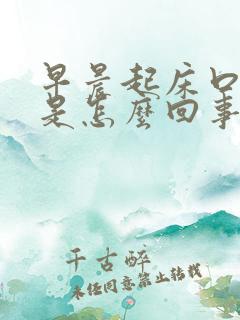 早晨起床口
是怎麼回事
千古醉
未经同意禁止转载